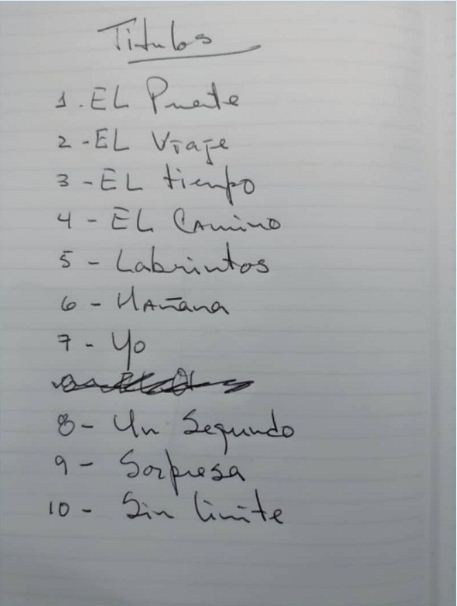 Titulos
1. EL Puente
2 - EL Viaje
3 - EL tiempo
4 - EL Camino
5 - Labrintos
6 - Mañana
7 - Yo
8 - Un Segundo
9 - Sorpresa
10 - Sin limite